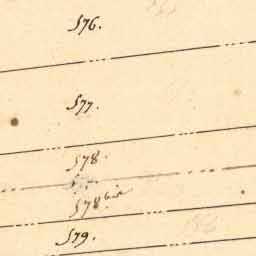 576.
577.
578.
578bis
579.